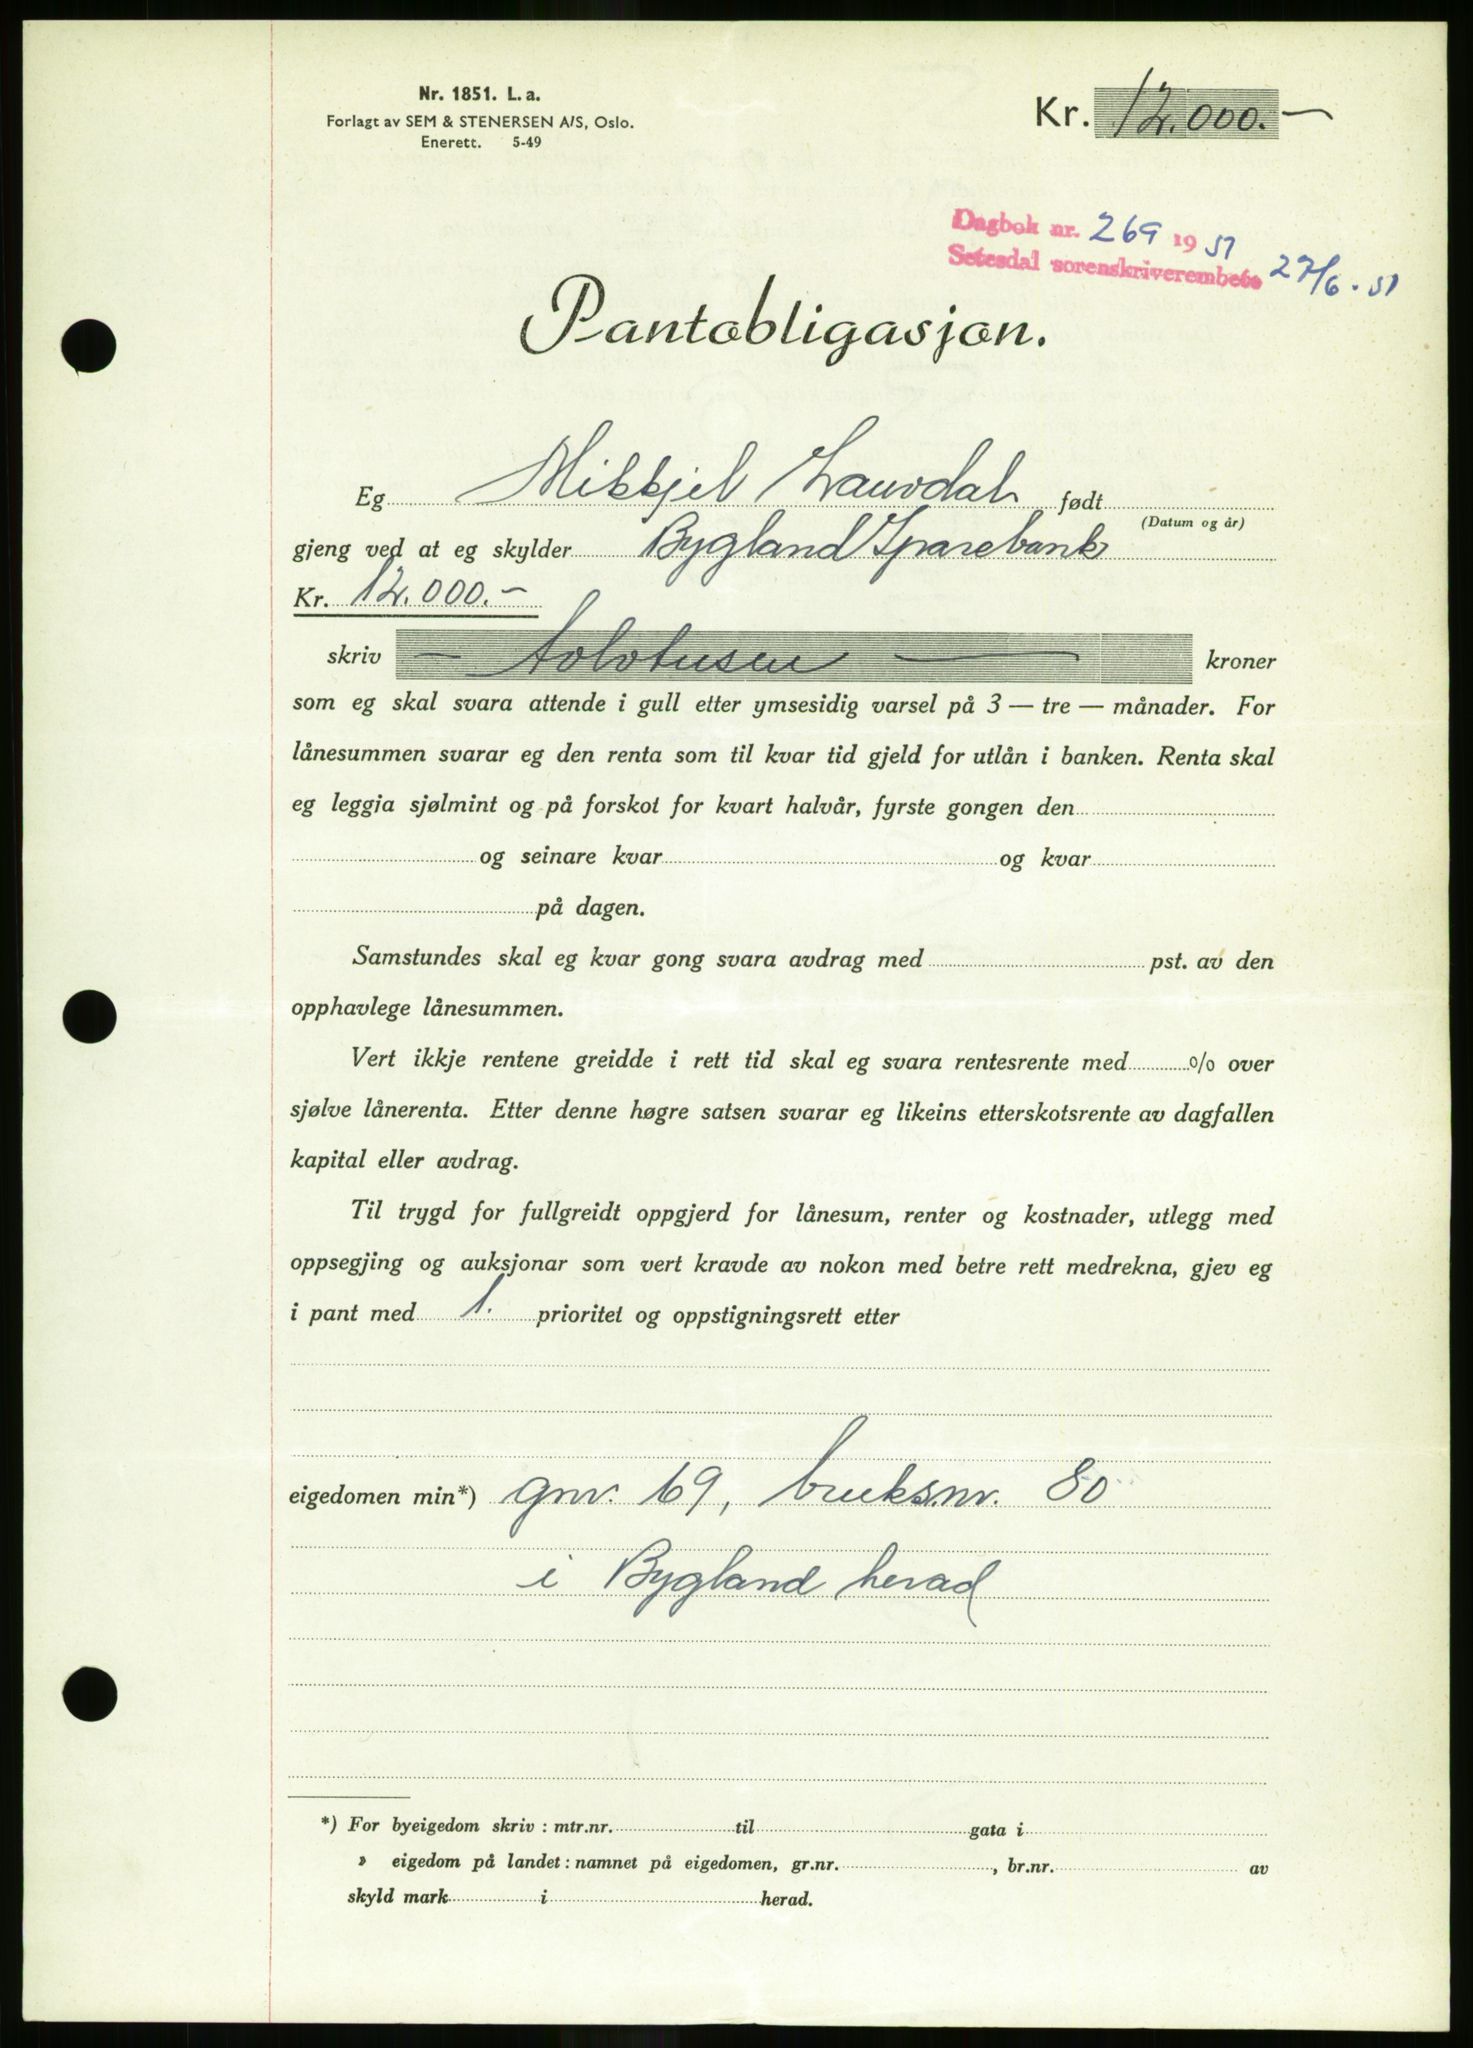 Nr. 1851. L. a.
Forlagt av SEM & STENERSEN A/S, Oslo.
Enerett. 5-49
Kr. 12.000.-
Dagbok nr. 269 1951
Setesdal sorenskriverembete 27/6. 51
Pantobligasjon.
Eg Mikkjel Lauvdal født
(Datum og år)
gjeng ved at eg skylder Bygland Sparebank
Kr. 12.000.-
skriv - tolvtusen - kroner
som eg skal svara attende i gull etter ymsesidig varsel på 3 — tre — månader. For
lånesummen svarar eg den renta som til kvar tid gjeld for utlån i banken. Renta skal
eg leggja sjølmint og på forskot for kvart halvår, fyrste gongen den
og seinare kvar og kvar
på dagen.
Samstundes skal eg kvar gong svara avdrag med pst. av den
opphavlege lånesummen.
Vert ikkje rentene greidde i rett tid skal eg svara rentesrente med % over
sjølve lånerenta. Etter denne høgre satsen svarar eg likeins etterskotsrente av dagfallen
kapital eller avdrag.
Til trygd for fullgreidt oppgjerd for lånesum, renter og kostnader, utlegg med
oppsegjing og auksjonar som vert kravde av nokon med betre rett medrekna, gjev eg
i pant med 1. prioritet og oppstigningsrett etter
eigedomen min*) gnr. 69, bruksnr. 80
i Bygland herad
*) For byeigedom skriv : mtr.nr. til gata i
» eigedom på landet : namnet på eigedomen, gr.nr. , br.nr. av
skyld mark i herad.